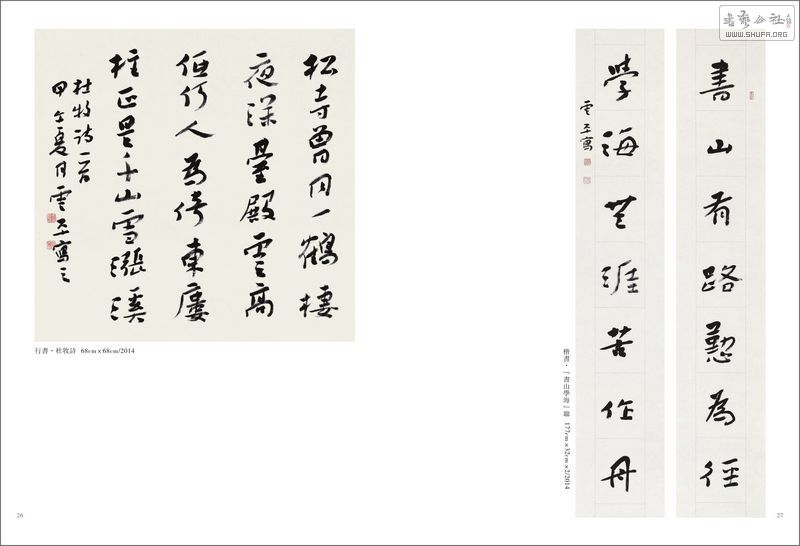 書藝公社
WWW.SHUFA.ORG
松寺曾同一鶴棲
夜深臺殿雲高
低何人為倚東廔
柱正是千山雪漲溪
杜牧詩一首
甲午夏月雲平寫之
行書·杜牧詩 68cm×68cm/2014
書山有路懃為徑
學海無涯苦作舟
雲平寫
楷書·「書山學海」聯 177cm×32cm×2/2014
26
27